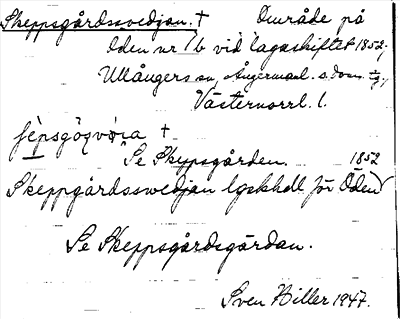 Skeppsgårdssvedjan. † Område på
Öden nr 1b vid lagaskiftet 1852,
Ullångers sn, Ångermanl. s. doms.
Västernorrl. l.
†
Se Skeppsgården. 1852
Skeppgårdsswedjan lgskhdl för Öden
Se Skeppsgårdsgårdan.
Sven Hiller 1947.